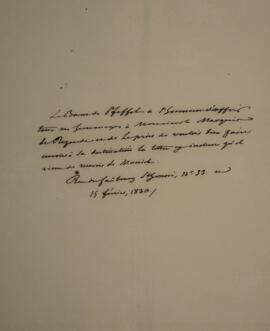 Le Baron de Pfeffel a l'honneur d'offrir
ses hommages à Monsieur le Marquis
de Rezende et de le prier de vouloir bien faire
à sa destination la lettre ci-incluse qu'il
vient de recevoir de Munich.
Rue du faubourg St Honoré, No 33. ce
15 février, 1830